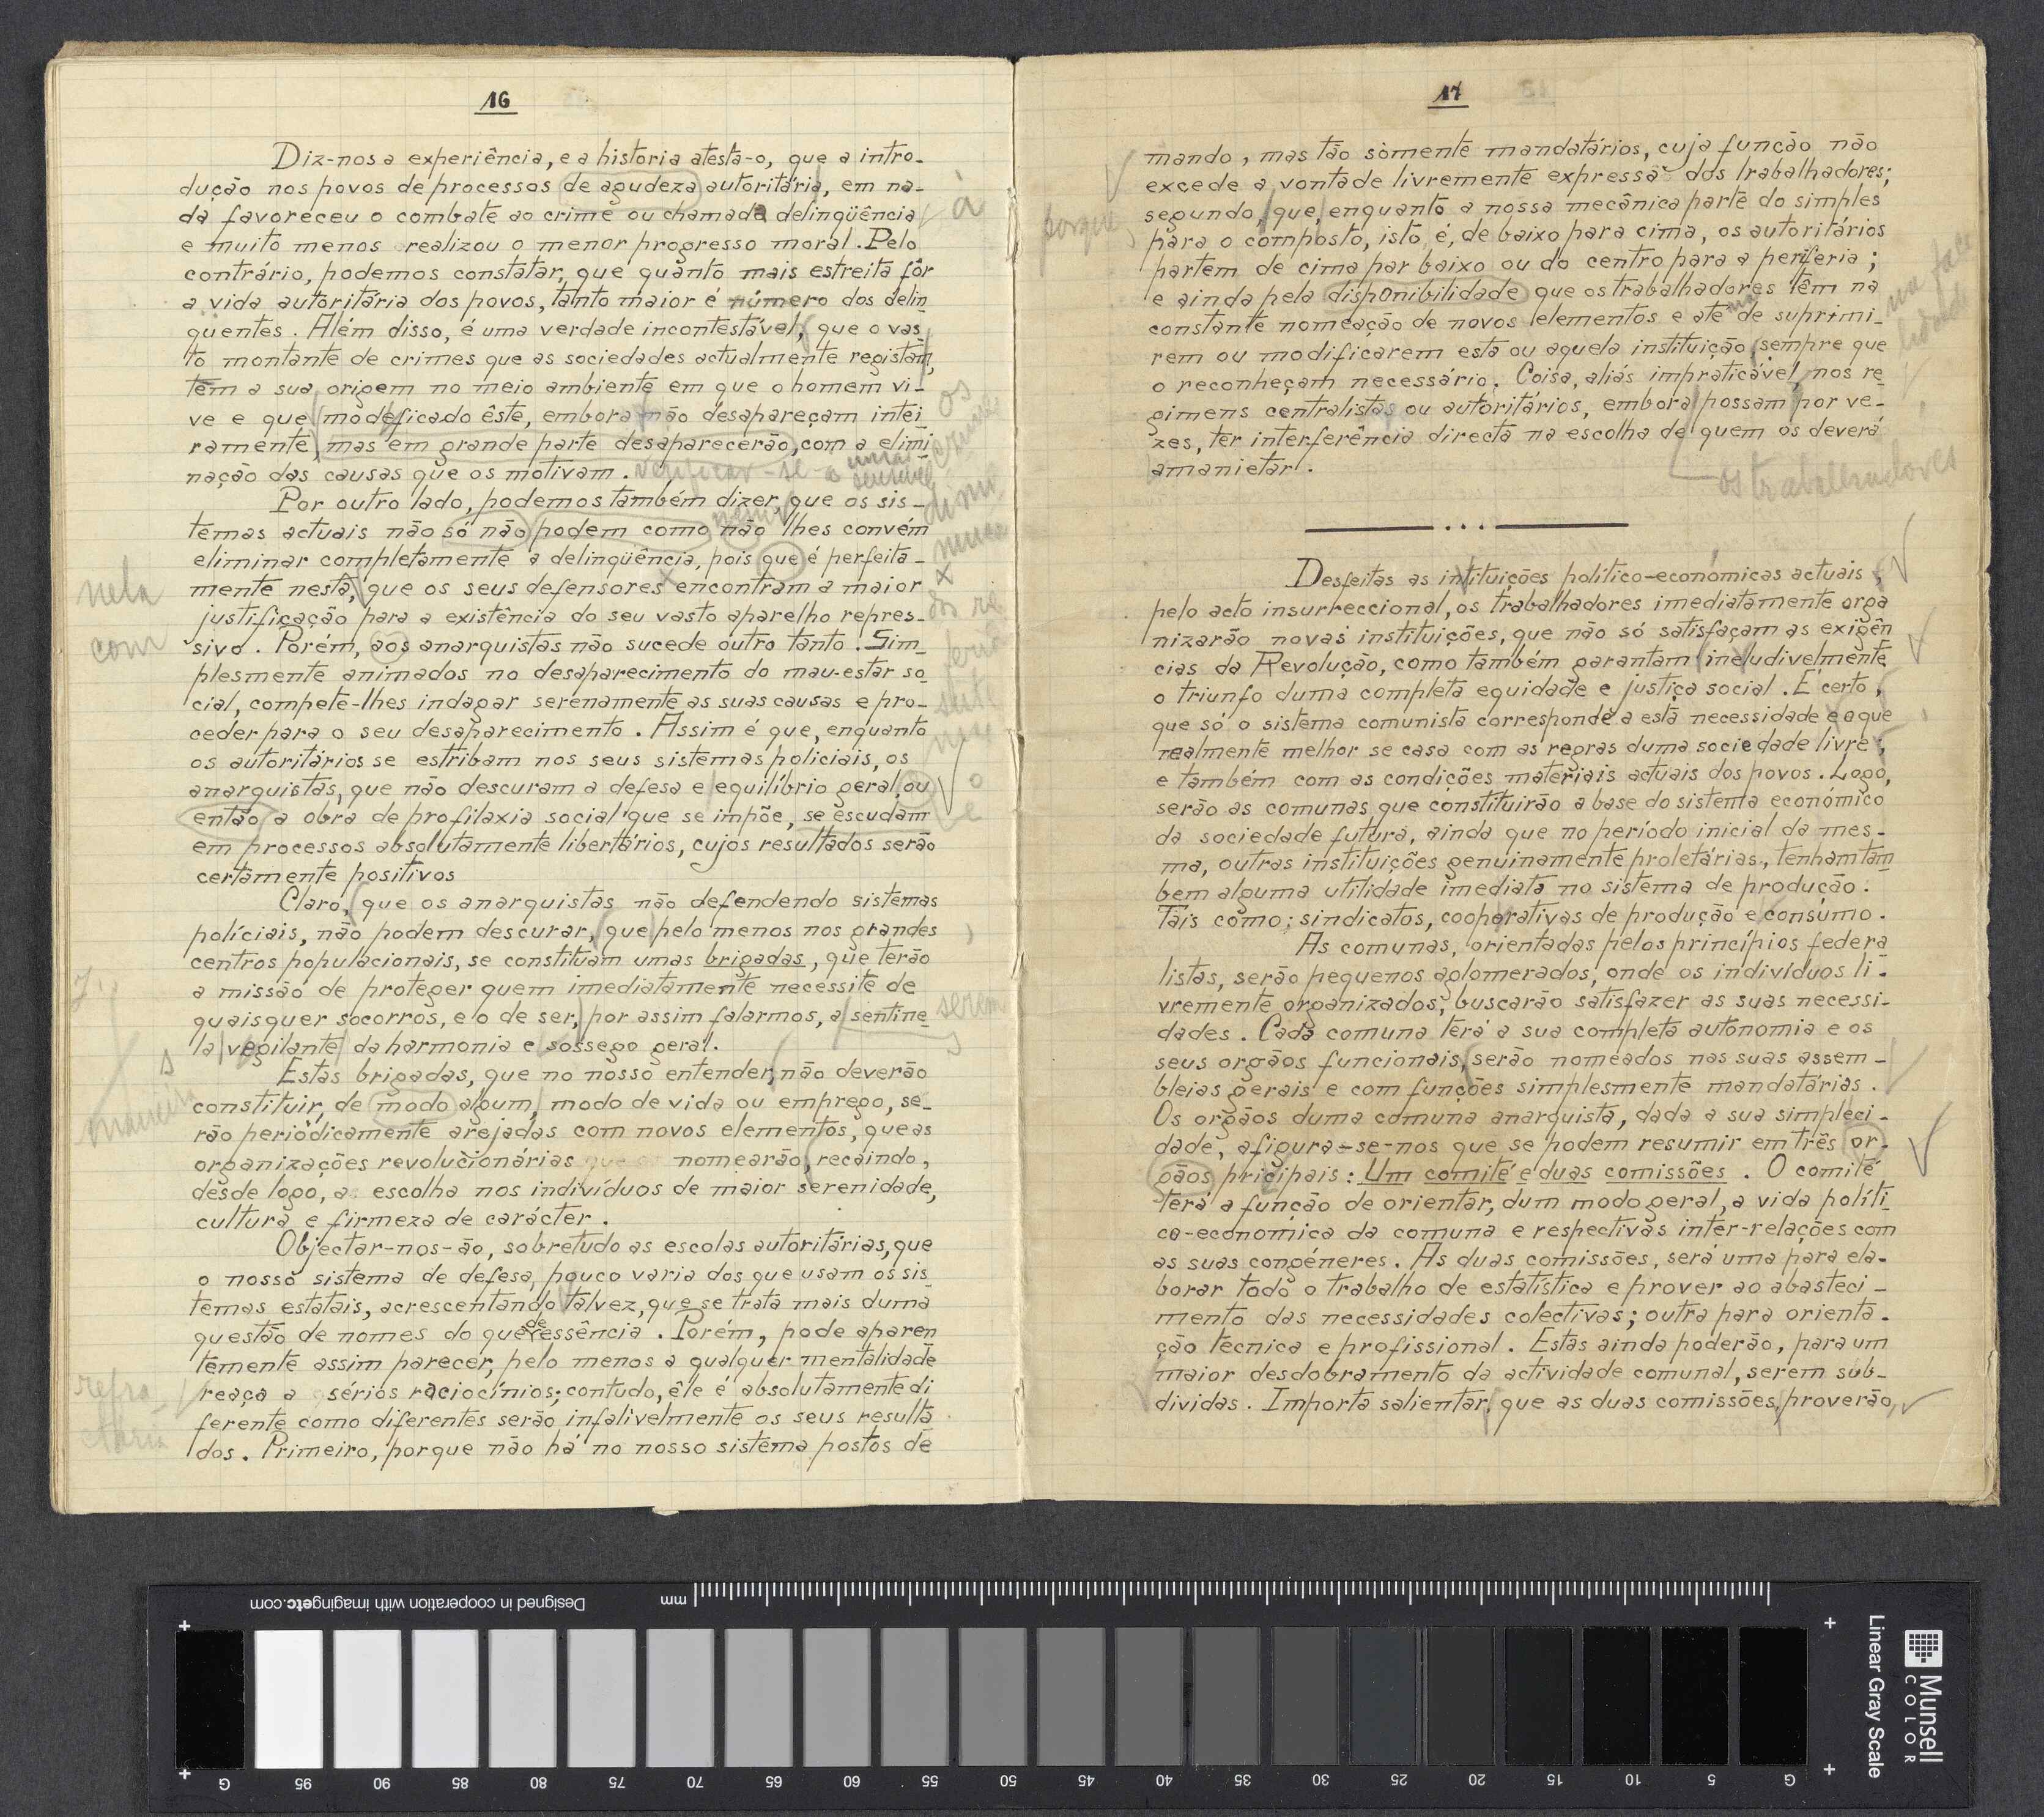 16
Diz-nos a experiência, e a historia atesta-o, que a intro-
dução nos povos de processos de agudeza autoritária, em na-
da favoreceu o combate ao crime ou chamada delinqüência
à
e muito menos realizou o menor progresso moral. Pelo
contrário, podemos constatar, que quanto mais estreita fôr
a vida autoritária dos povos, tanto maior é número dos delin
quentes. Além disso, é uma verdade incontestável, que o vas
to montante de crimes que as sociedades actualmente registam,
têm a sua origem no meio ambiente em que o homem vi-
ve e que modeficado êste, embora não desapareçam intei
os
ramente, mas em grande parte desaparecerão, com a elimi
nação das causas que os motivam. verificar-se-a uma
sensivel
Por outro lado, podemos também dizer, que os sis-
dimi
temas actuais não só não podem como não lhes convém
nem
eliminar completamente a delinqüência, pois que é perfeita-
mente nesta, que os seus defensores encontram a maior
nela
x
justificação para a existência do seu vasto aparelho repres-
com
sivo. Porém, aos anarquistas não sucede outro tanto. Sim-
plesmente animados no desaparecimento do mau-estar so-
cial, compete-lhes indagar serenamente as suas causas e pro-
ceder para o seu desaparecimento. Assim é que, enquanto
os autoritários se estribam nos seus sistemas policiais, os
anarquistas, que não descuram a defesa e equilíbrio geral, ou
o
então a obra de profilaxia social que se impõe, se escudam
e
em processos absolutamente libertários, cujos resultados serão
certamente positivos
Claro, que os anarquistas não defendendo sistemas
políciais, não podem descurar, que pelo menos nos grandes
centros populacionais, se constituam umas brigadas, que terão
a missão de proteger quem imediatamente necessite de
quaisquer socorros, e o de ser, por assim falarmos, a sentine-
serem
la vegilante da harmonia e sossego geral.
s
Estas brigadas, que no nosso entender, não deverão
constituir, de modo algum, modo de vida ou emprego, se-
maneira
rão periòdicamente arejadas com novos elementos, que as
organizações revolucionárias nomearão, recaindo,
desde logo, a escolha nos indivíduos de maior serenidade,
cultura e firmeza de carácter.
Objectar-nos-ão, sobretudo as escolas autoritárias, que
o nosso sistema de defesa, pouco varia dos que usam os sis
temas estatais, acrescentando talvez, que se trata mais duma
questão de nomes do que de essência. Porém, pode aparen
temente assim parecer, pelo menos a qualquer mentalidade
reaça a sérios raciocínios; contudo, êle é absolutamente di
refra
ctaria
ferente como diferentes serão infalivelmente os seus resulta
dos. Primeiro, porque não há no nosso sistema postos de
17
mando, mas tão sòmente mandatários, cuja função não
excede a vontade livremente expressa dos trabalhadores;
segundo, que, enquanto a nossa mecânica parte do simples
porque,
para o composto, isto é, de baixo para cima, os autoritários
partem de cima par baixo ou do centro para a periferia;
e ainda pela disponibilidade que os trabalhadores têm na
na
constante nomeação de novos elementos e até de suprimi-
rem ou modificarem esta ou aquela instituição, sempre que
o reconheçam necessário. Coisa, aliás impraticável, nos re
gimens centralistas ou autoritários, embora possam por ve-
zes, ter interferência directa na escolha de quem os deverá
amanietar.
os trabalhadores
Desfeitas as intituições político-económicas actuais,
pelo acto insurreccional, os trabalhadores imediatamente orga
nizarão novas instituições, que não só satisfaçam as exigên
cias da Revolução, como também garantam ineludivelmente
o triunfo duma completa equidade e justiça social. É certo,
que só o sistema comunista corresponde a esta necessidade e o que
realmente melhor se casa com as regras duma sociedade livre,
e também com as condições materiais actuais dos povos. Logo,
serão as comunas que constituirão a base do sistema económico
da sociedade futura, ainda que no período inicial da mes-
ma, outras instituições genuinamente proletárias, tenham tam
bem alguma utilidade imediata no sistema de produção.
Tais como: sindicatos, cooperativas de produção e consumo.
As comunas, orientadas pelos princípios federa
listas, serão pequenos aglomerados, onde os indivíduos li-
vremente organizados, buscarão satisfazer as suas necessi-
dades. Cada comuna terá a sua completa autonomia e os
seus orgãos funcionais, serão nomeados nas suas assem-
bleias gerais e com funções simplesmente mandatárias.
Os orgãos duma comuna anarquista, dada a sua simpleci-
dade, afigura-se-nos que se podem resumir em três or-
gãos pricipais: Um comité e duas comissões. O comité
terá a função de orientar, dum modo geral, a vida políti
co-economica da comuna e respectivas inter-relações com
as suas congéneres. As duas comissões, será uma para ela-
borar todo o trabalho de estatística e prover ao abasteci-
mento das necessidades colectivas; outra para orienta-
ção técnica e profissional. Estas ainda poderão, para um
maior desdobramento da actividade comunal, serem sub-
dividas. Importa salientar, que as duas comissões, proverão,
Designed in cooperation with imagingetc.com
mm
Munsell
COLOR
Linear Gray Scale
G 95 90 85 80 75 70 65 60 55 50 45 40 35 30 25 20 15 10 5 G